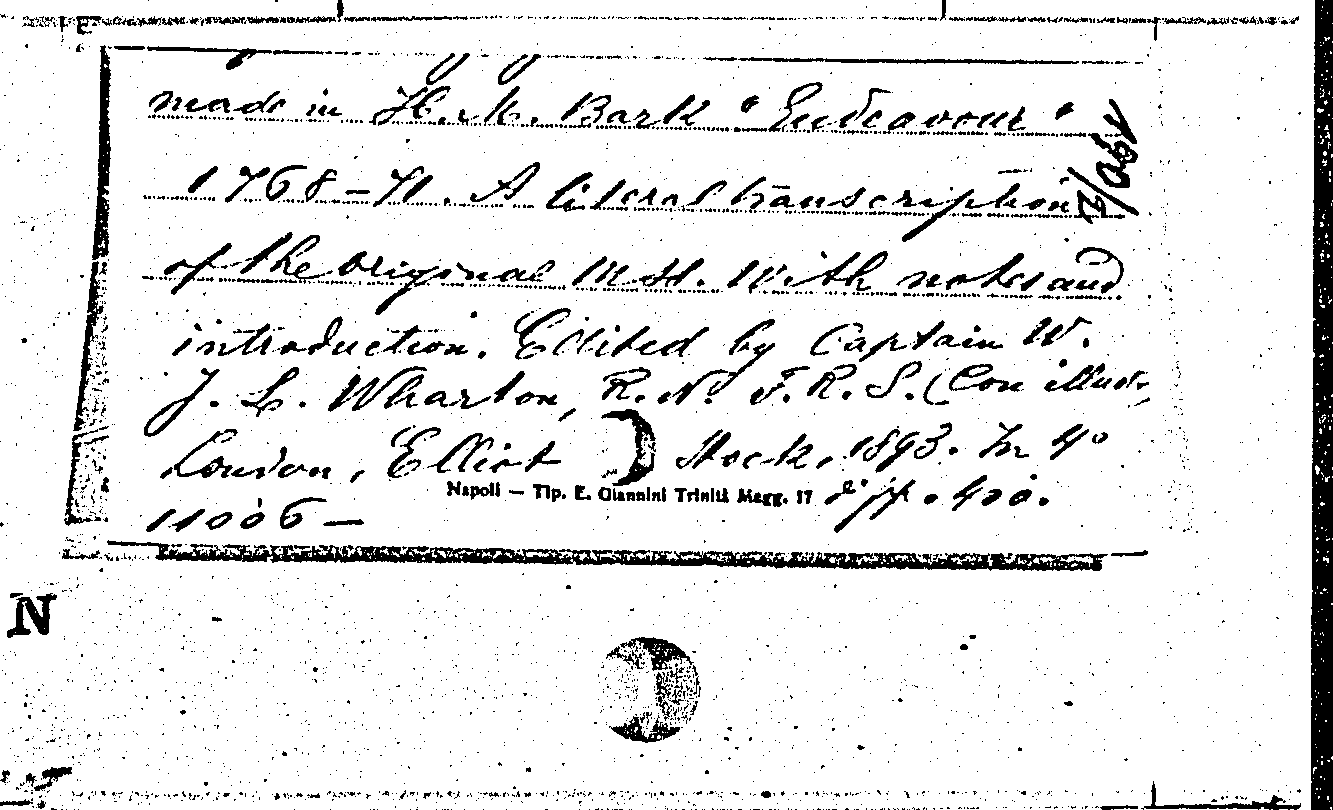 made in H. M. Bark "Endeavour"
1768-71. A literal transcription
of the original MSS. With notes and
introduction. Edited by Captain W.
J. L. Wharton, R. N. F. R. S. (Con illust.,
London, Elliot Stock, 1893. In 4º
Napoli — Tip. E. Giannini Trinità Magg. 17 di pp. 400.
11006 —
N